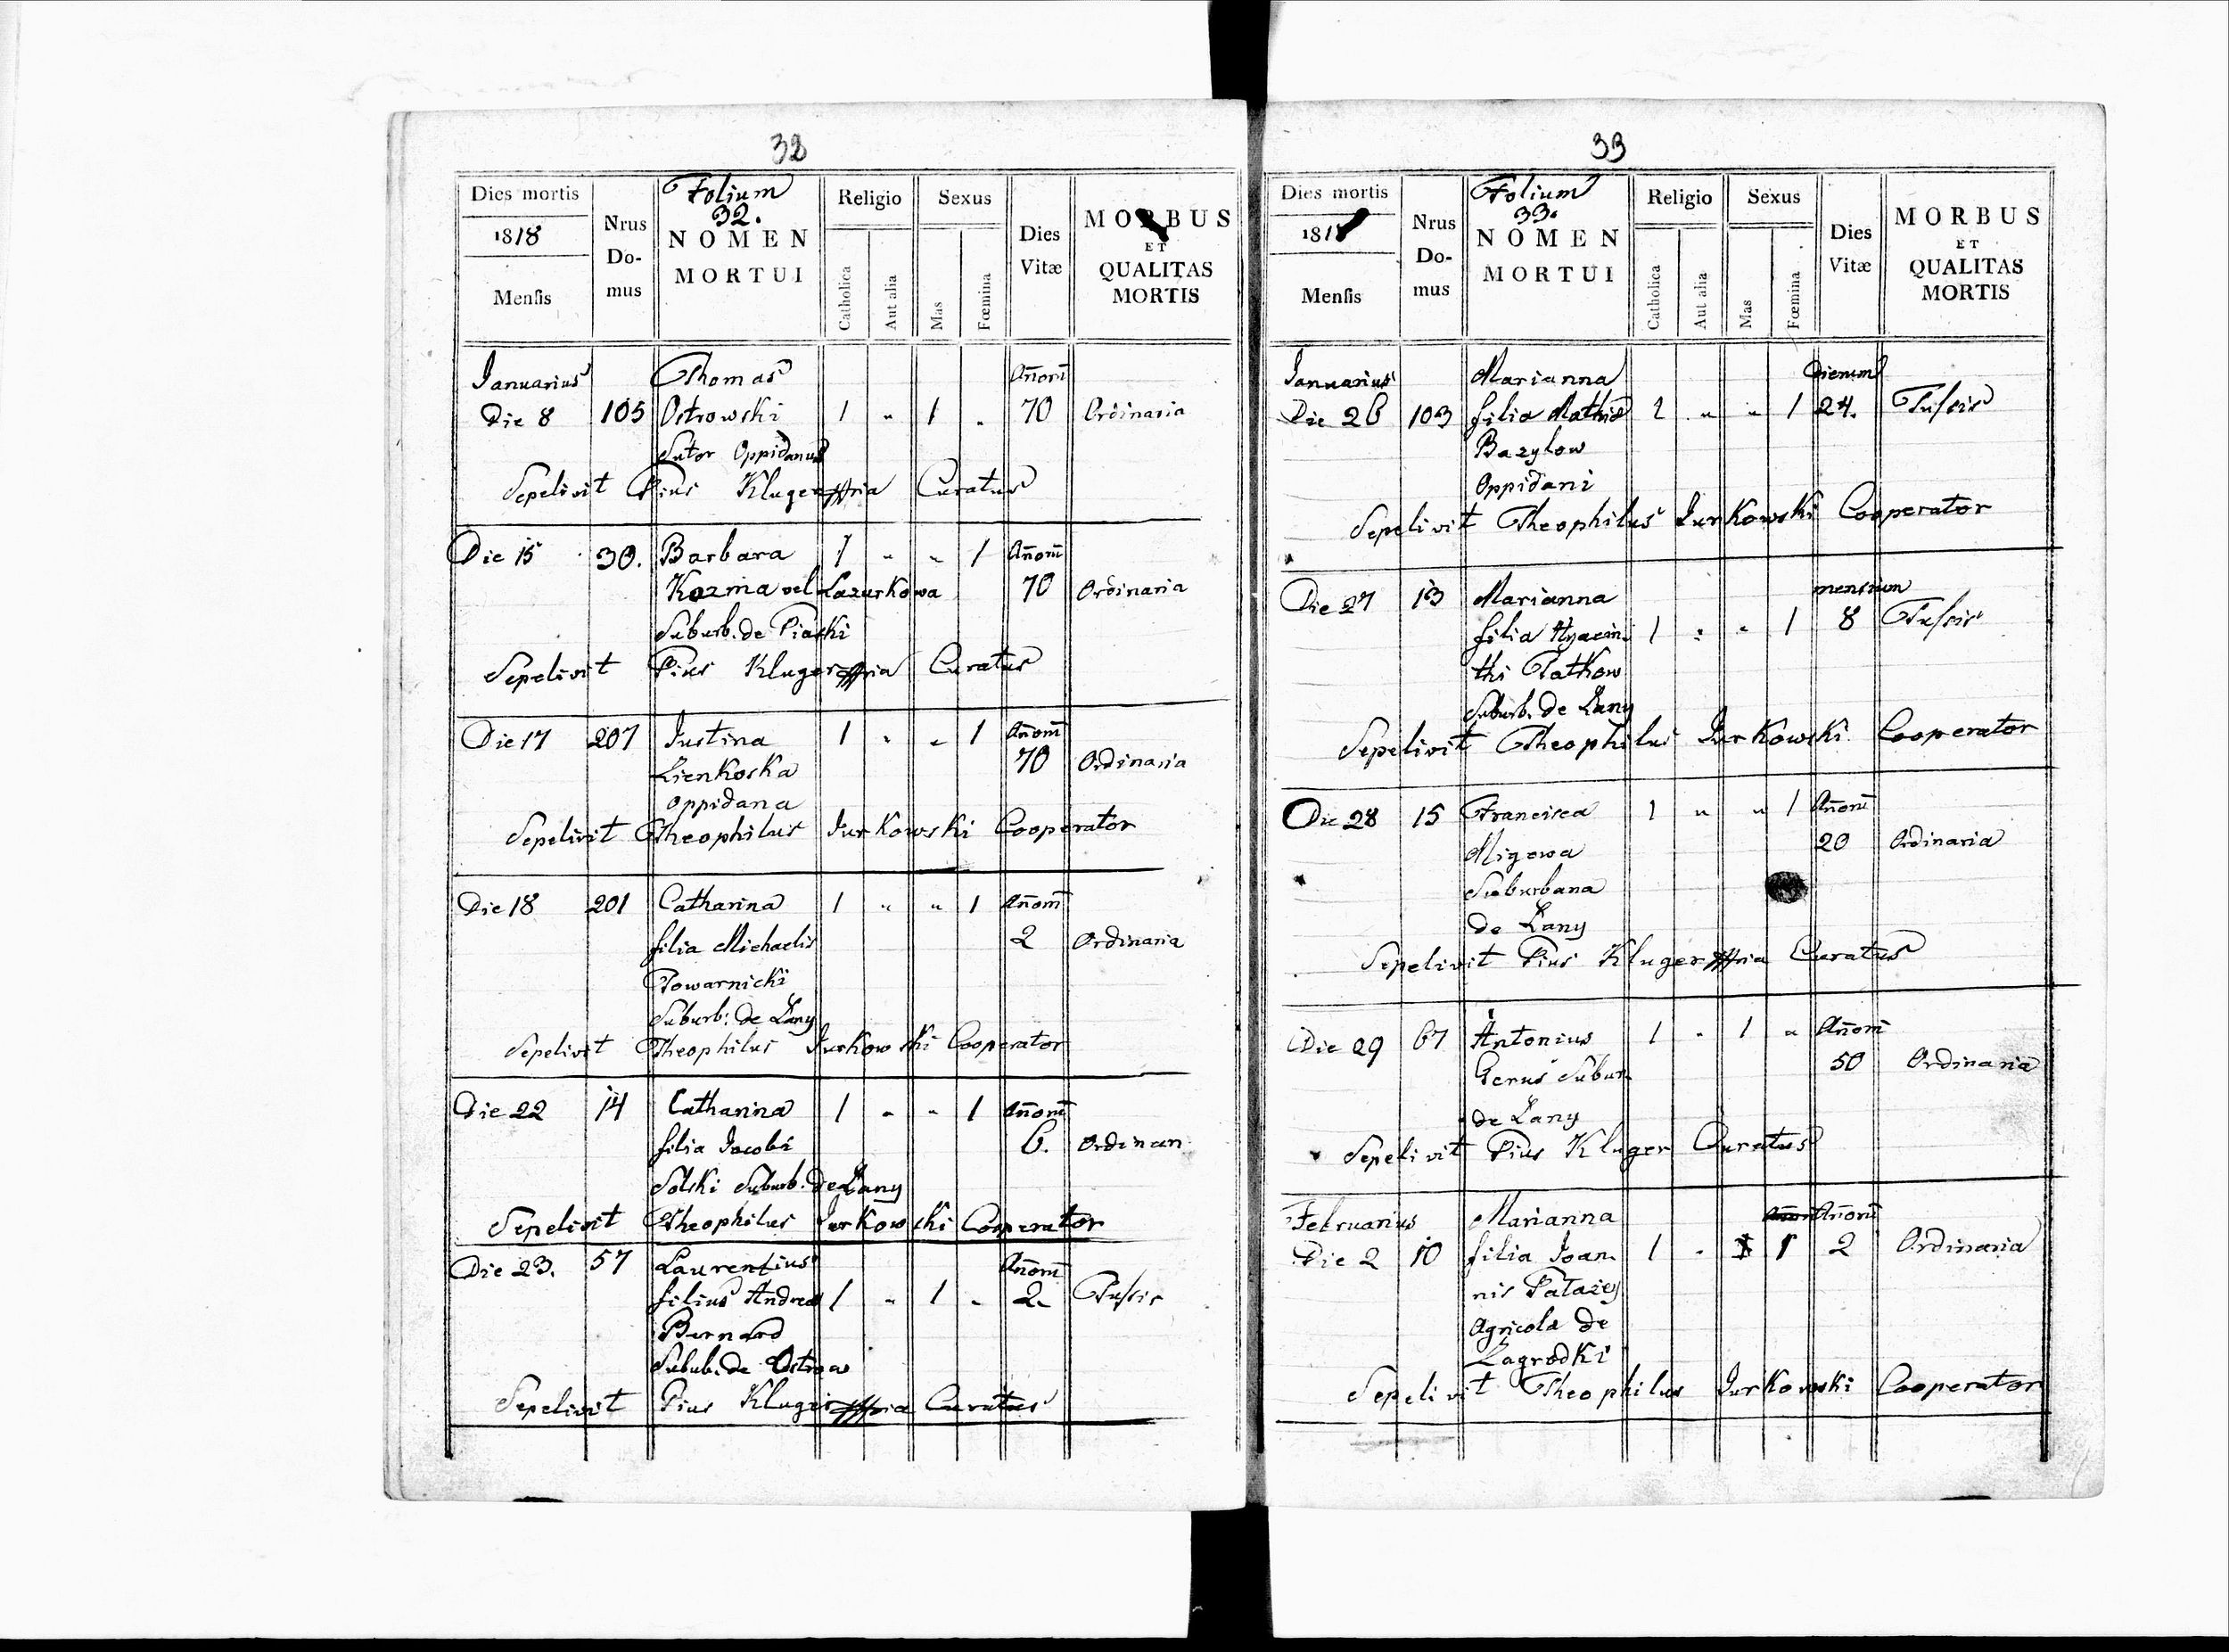 32
Dies mortis
1818
Mensis
Nrus Do- mus
Folium
32.
NOMEN
MORTUI
Religio
Catholica
Aut alia
Sexus
Mas
Fœmina
Dies
Vitæ
MORBUS
ET
QUALITAS
MORTIS
Januarius Thomas Añorũ
Die 8 105 Ostrowski 1 " 1 " 70 Ordinaria
Sutor Oppidanus
Sepelivit Pius Kluger Curatus
Die 15 30. Barbara 1 " " 1 Añorũ
Kozma vel Lazurkowa 70 Ordinaria
Suburb. de Piaski
Sepelivit Pius Kluger Curatus
Die 17 207 Justina 1 " " 1 Añorũ
Lienkoska 70 Ordinaria
Oppidana
Sepelivit Theophilus Jurkowski Cooperator
Die 18 201 Catharina 1 " " 1 Añorũ
filia Michaelis 2 Ordinaria
Towarnicki
Suburb: de Łany
Sepelivit Theophilus Jurkowski Cooperator
Die 22 14 Catharina 1 " " 1 Añorũ
filia Jacobi 6. Ordinari
Solski Suburb. de Łany
Sepelivit Theophilus Jurkowski Cooperator
Die 23. 57 Laurentius Añorũ
filius Andreæ 1 " 1 " 2. Tuſsis
Bernard
Subub. de Ostrow
Sepelivit Pius Kluger Curatus
33
Dies mortis
1818
Mensis
Nrus Do- mus
Folium
33.
NOMEN
MORTUI
Religio
Catholica
Aut alia
Sexus
Mas
Fœmina
Dies
Vitæ
MORBUS
ET
QUALITAS
MORTIS
Januarius Marianna Dierum
Die 26 103 filia Mathiæ 1 " " 1 24. Tuſsis
Bazylow
Oppidani
Sepelivit Theophilus Jurkowski Cooperator
Die 27 13 Marianna mensium
filia Hyacin- 1 " " 1 8 Tuſsis
thi Patkow
Suburb. de Łany
Sepelivit Theophilus Jurkowski Cooperator
Die 28 15 Francisca 1 " " 1 Añorũ
Migowa 20 Ordinaria
Suburbana
de Łany
Sepelivit Pius Kluger Curatus
Die 29 67 Antonius 1 " 1 " Añorũ
Gerus Subur. 50 Ordinaria
de Łany
Sepelivit Pius Kluger Curatus
Februarius Marianna Añorũ
Die 2 10 filia Joan- 1 " 1 2 Ordinaria
nis Patazey
Agricola de
Zagrodki
Sepelivit Theophilus Jurkowski Cooperator